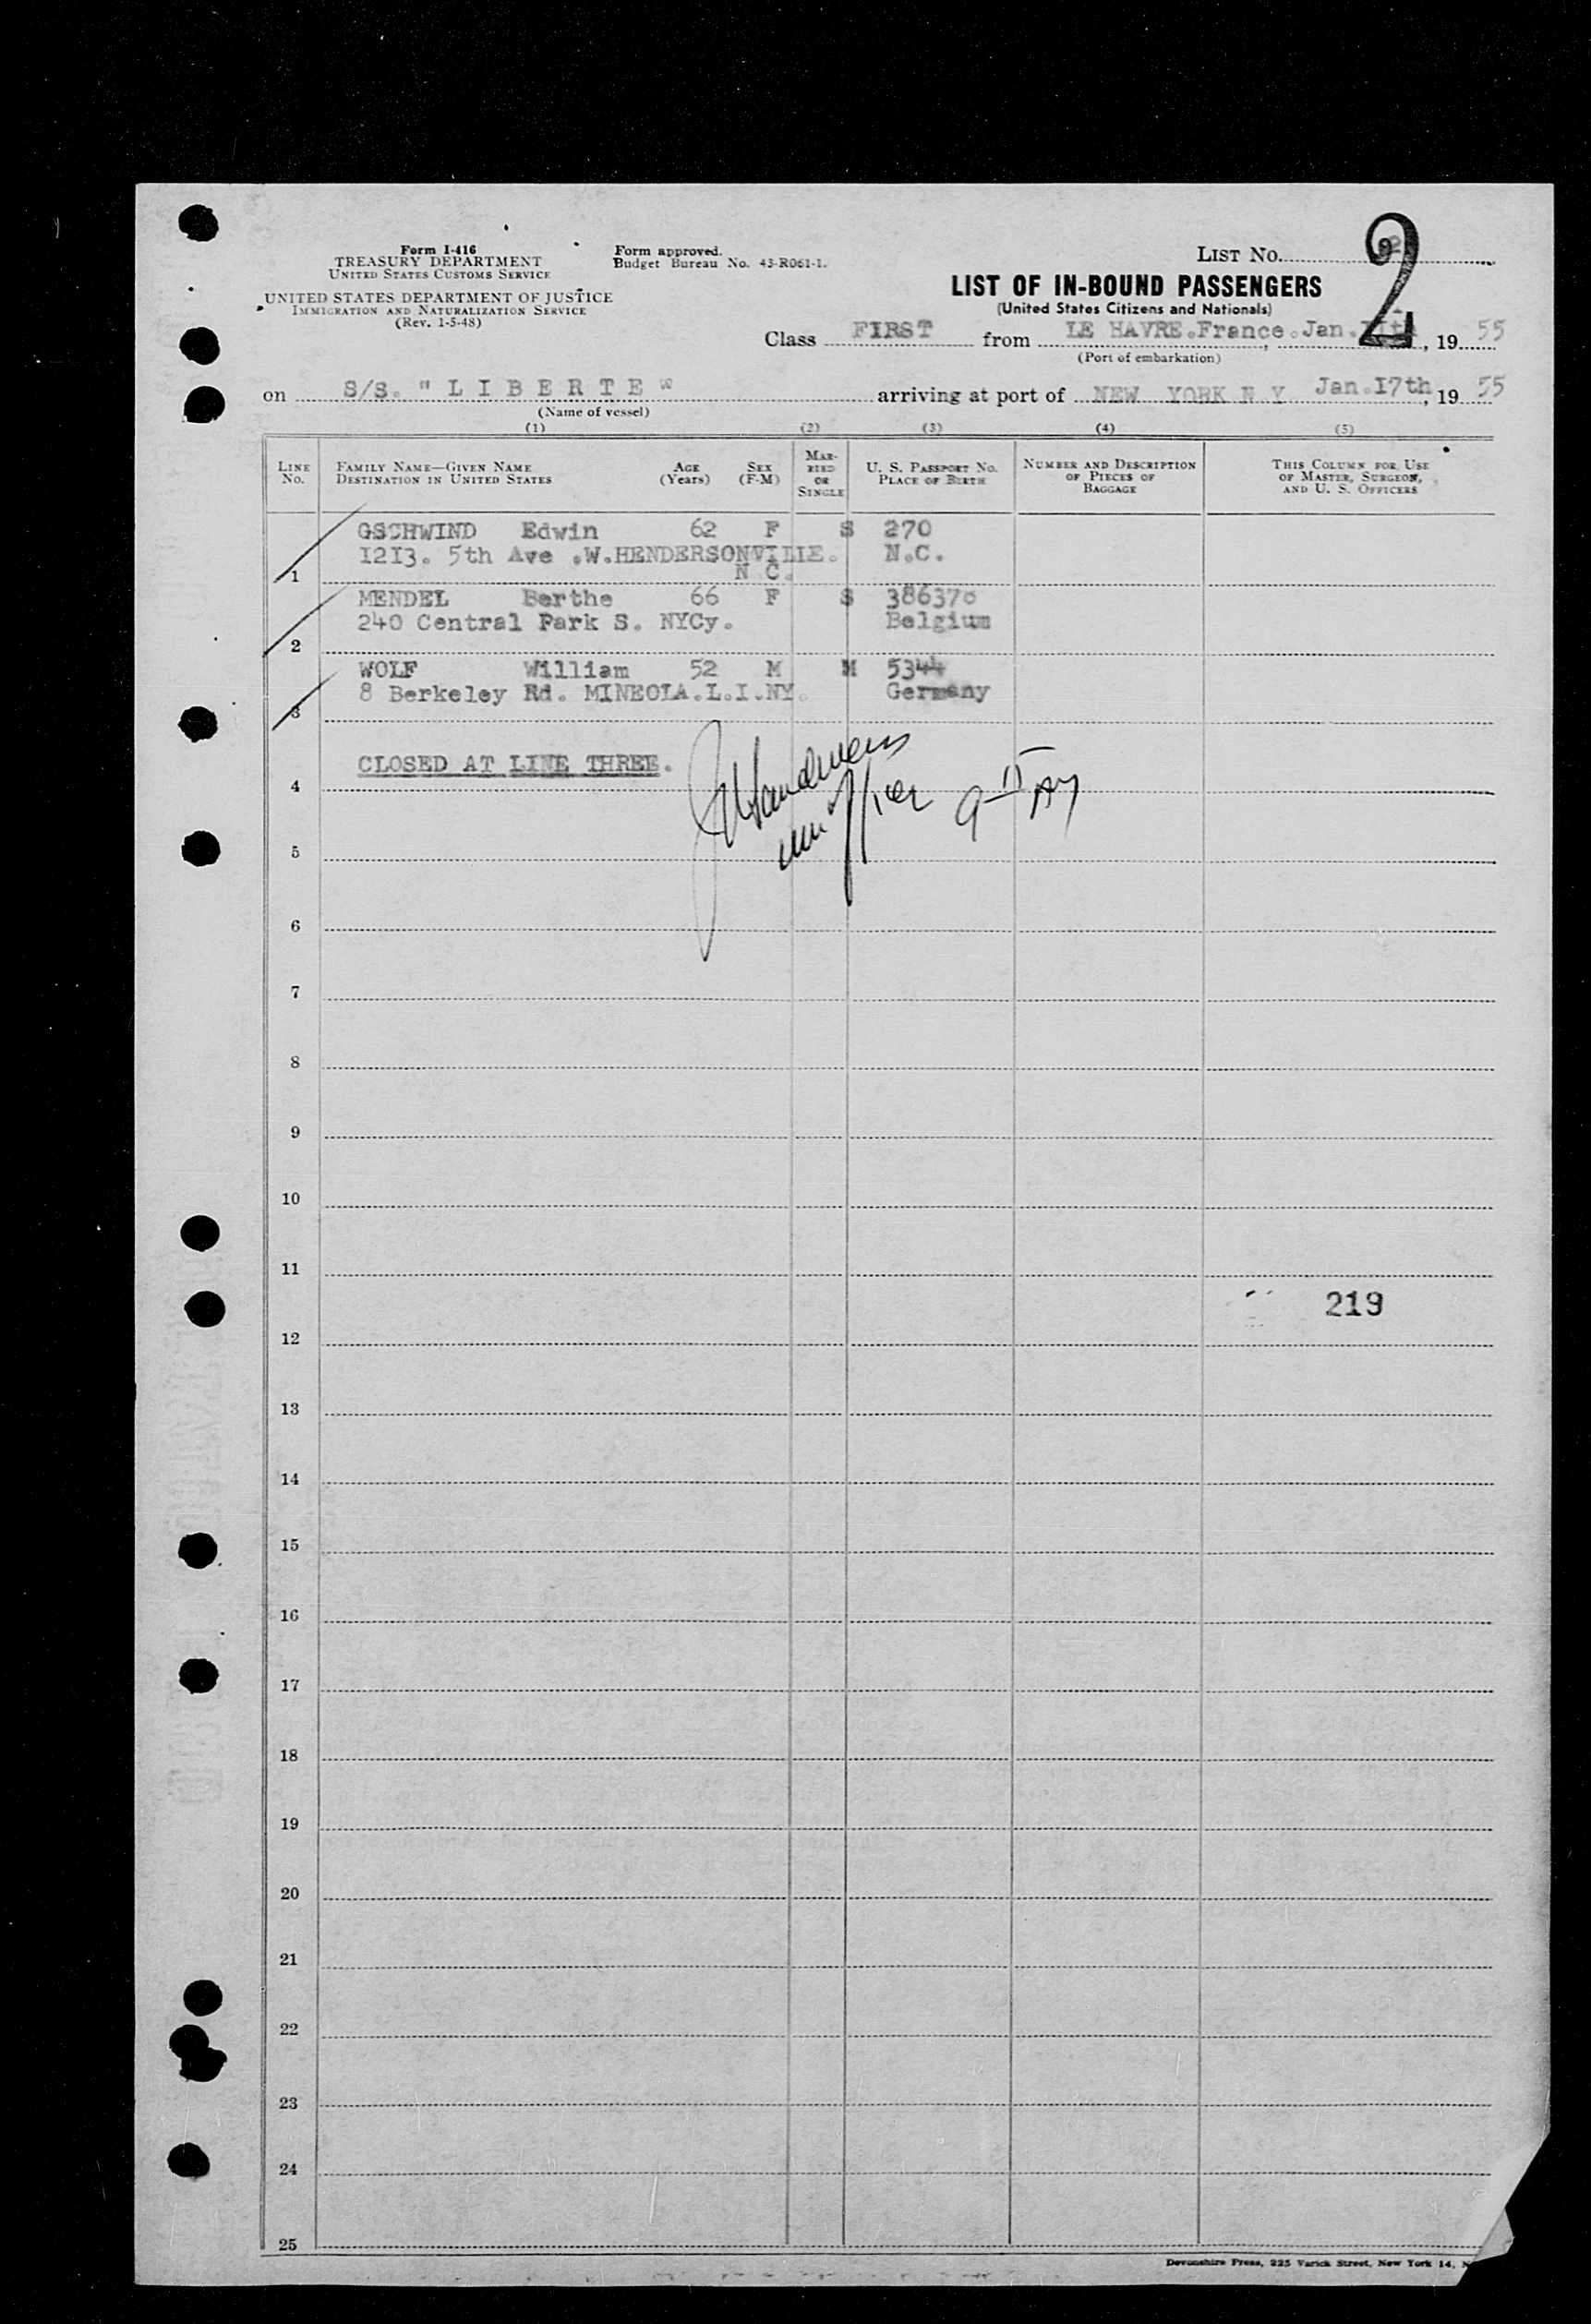 Form I-416
TREASURY DEPARTMENT
UNITED STATES CUSTOMS SERVICE
UNITED STATES DEPARTMENT OF JUSTICE
IMMIGRATION AND NATURALIZATION SERVICE
(Rev. 1-5-48)
Form approved.
Budget Bureau No. 43-R061-1.
LIST NO. 2
LIST OF IN-BOUND PASSENGERS
(United States Citizens and Nationals)
Class FIRST from LE HAVRE.France.Jan. , 19 55
(Port of embarkation)
on S/S. "LIBERTE" arriving at port of NEW YORK N Y Jan.17th, 19 55
(Name of vessel)
(1) (2) (3) (4) (5)
LINE No.
FAMILY NAME—GIVEN NAME
DESTINATION IN UNITED STATES
AGE (Years)
SEX (F-M)
MARRIED OR SINGLE
U. S. PASSPORT NO.
PLACE OF BIRTH
NUMBER AND DESCRIPTION OF PIECES OF BAGGAGE
THIS COLUMN FOR USE OF MASTER, SURGEON, AND U. S. OFFICERS
GSCHWIND Edwin 62 F S 270
1213. 5th Ave .W.HENDERSONVILLE. N.C.
1 N C.
MENDEL Berthe 66 F S 386370
240 Central Park S. NYCy. Belgium
2
WOLF William 52 M M 5344
8 Berkeley Rd. MINEOLA.L.I.NY. Germany
3
CLOSED AT LINE THREE.
4
5
6
7
8
9
10
11
219
12
13
14
15
16
17
18
19
20
21
22
23
24
25
Devonshire Press, 225 Varick Street, New York 14,